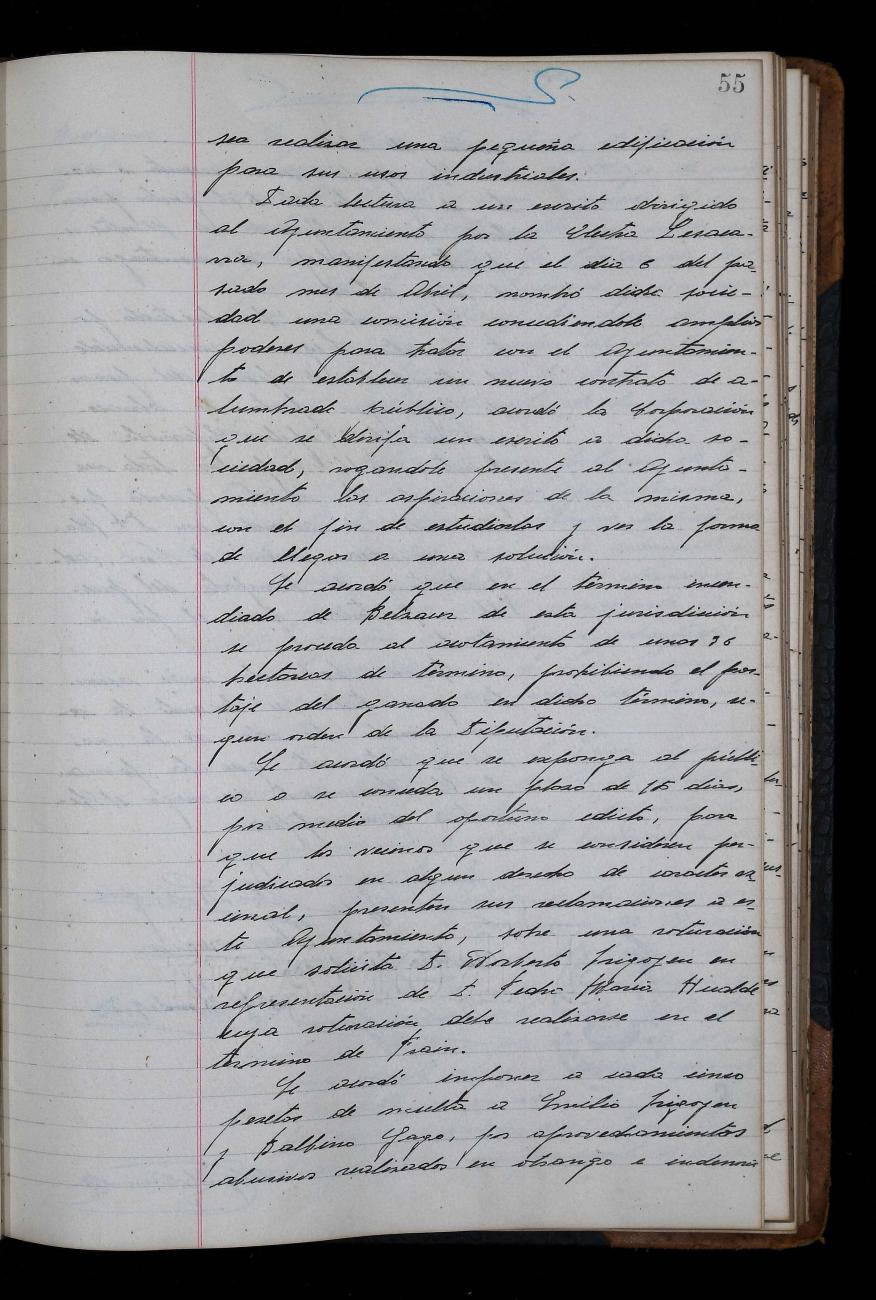 55
sea realizar una pequeña edificación
para sus usos industriales.
Dada lectura a un escrito dirigido
al Ayuntamiento por la Electra Lesaca-
rra, manifestando que el dia 6 del pa-
sado mes de Abril, nombró dicha socie-
dad una comisión concediendole amplios
poderes para tratar con el Ayuntamien-
to de establecer un nuevo contrato de a-
lumbrado público, acordó la Corporación
que se dirija un escrito a dicha so-
ciedad, rogandole presente al Ayunta-
miento las aspiraciones de la misma,
con el fin de estudiarlas y ver la forma
de llegar a una solución.
Se acordó que en el término incen-
diado de de esta jurisdicción
se proceda al acotamiento de unas 36
hectareas de término, prohibiendo el pas-
taje del ganado en dicho término, se-
gun orden de la Diputación.
Se acordó que se exponga al públi-
co o se conceda un plazo de 15 dias,
por medio del oportuno edicto, para
que los vecinos que se consideren per-
judicados en algun derecho de caracter ve-
cinal, presenten sus reclamaciones a es-
te Ayuntamiento, sobre una roturación
que solicita D. Norberto Irigoyen en
representación de D. Pedro Maria Hualde
cuya roturación debe realizarse en el
término de Frain.
Se acordó imponer a cada cinco
pesetas de multa a Emilio Irigoyen
y Balbino Gago, por aprovechamientos
abusivos realizados en e